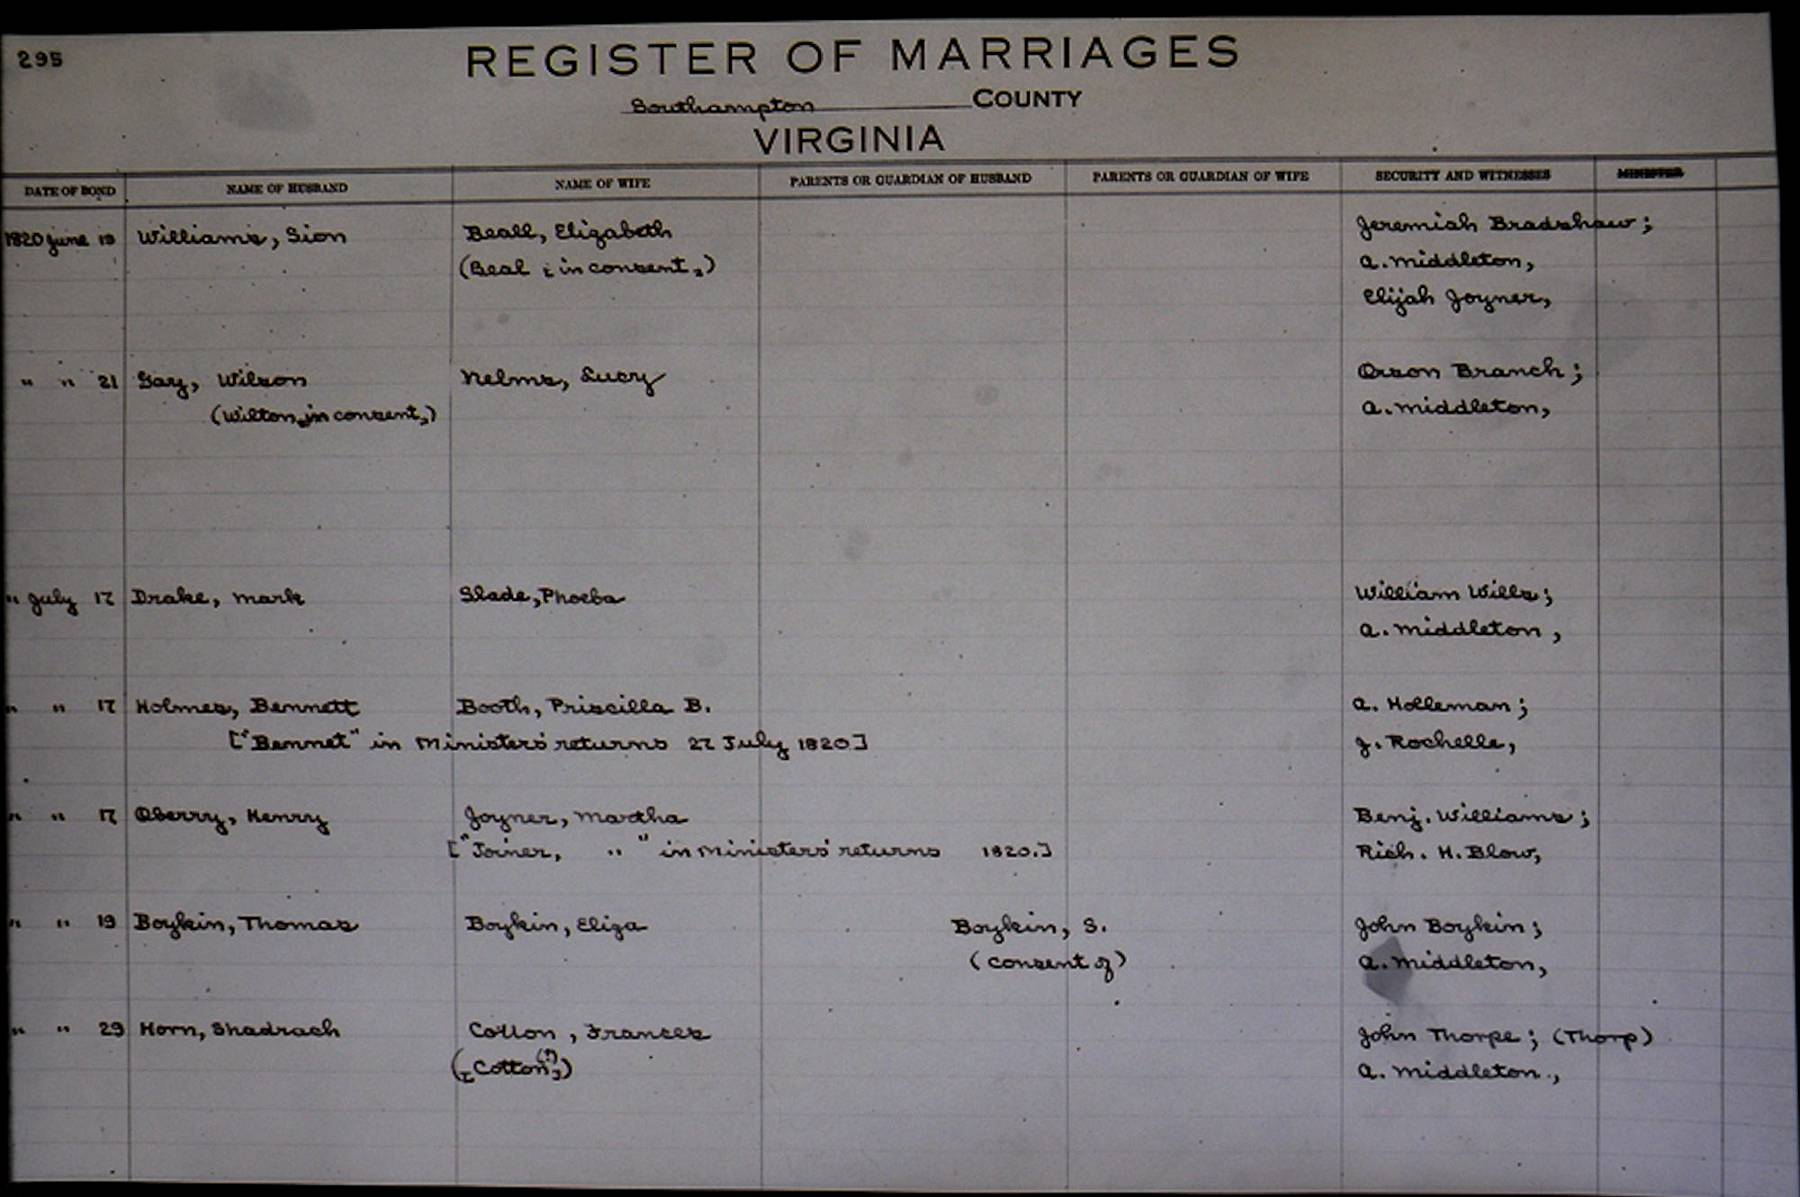 295
REGISTER OF MARRIAGES
Southampton COUNTY
VIRGINIA
DATE OF BOND NAME OF HUSBAND NAME OF WIFE PARENTS OR GUARDIAN OF HUSBAND PARENTS OR GUARDIAN OF WIFE SECURITY AND WITNESSES MINISTER
1820 June 19 Williams, Sion Beall, Elizabeth Jeremiah Bradshaw;
(Beal [in consent,]) A. Middleton,
Elijah Joyner,
" " 21 Gary, Wilson Nelms, Lucy Orson Branch;
(Wilton [in consent,]) A. Middleton,
" July 17 Drake, Mark Slade, Phoeba William Wills;
A. Middleton,
" " 17 Holmes, Bennett Booth, Priscilla B. A. Holleman;
["Bennet" in Ministers' returns 27 July 1820] J. Rochelle,
" " 17 Oberry, Henry Joyner, Martha Benj. Williams;
["Joiner, " " in Ministers' returns 1820.] Rich. H. Blow,
" " 19 Boykin, Thomas Boykin, Eliza Boykin, S. John Boykin;
(consent of) A. Middleton,
" " 29 Horn, Shadrach Collon, Frances John Thorpe; (Thorp)
([Cotton(?)]) A. Middleton.,